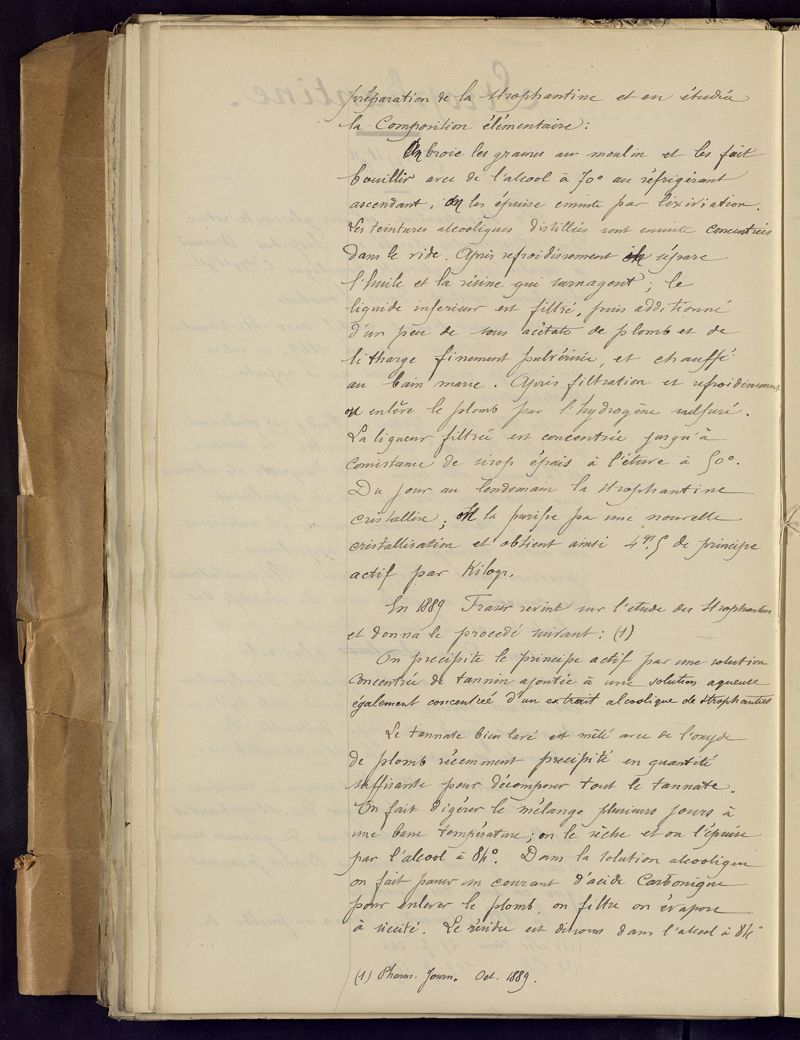 préparation de la strophantine et en étudia
la Composition élémentaire :
On broie les graines au moulin et les fait
bouillir avec de l'alcool à 70° au réfrigérant
ascendant. On les épuise ensuite par lixiviation.
Les teintures alcooliques distillées sont ensuite concentrées
dans le vide. Après refroidissement on sépare
l'huile et la résine qui surnagent ; le
liquide inférieur est filtré, puis additionné
d'un peu de sous acétate de plomb et de
litharge finement pulvérisée, et chauffé
au bain marie. Après filtration et refroidissement
on enlève le plomb par l'hydrogène sulfuré.
La liqueur filtrée est concentrée jusqu'à
consistance de sirop épais à l'étuve à 50°.
Du jour au lendemain la strophantine
cristallise ; on la purifie par une nouvelle
cristallisation et obtient ainsi 4gr.5 de principe
actif par Kilogr.
En 1889 Fraser revint sur l'étude du strophantus
et donna le procédé suivant : (1)
On précipite le principe actif par une solution
concentrée de tannin ajoutée à une solution aqueuse
également concentrée d'un extrait alcoolique de strophantus
Le tannate bien lavé est mêlé avec de l'oxyde
de plomb récemment précipité en quantité
suffisante pour décomposer tout le tannate.
On fait digérer le mélange plusieurs jours à
une basse température ; on le sèche et on l'épuise
par l'alcool à 84°. Dans la solution alcoolique
on fait passer un courant d'acide Carbonique
pour enlever le plomb, on filtre on évapore
à siccité. Le résidu est dissous dans l'alcool à 84°
(1) Pharm. Journ. Oct. 1889.